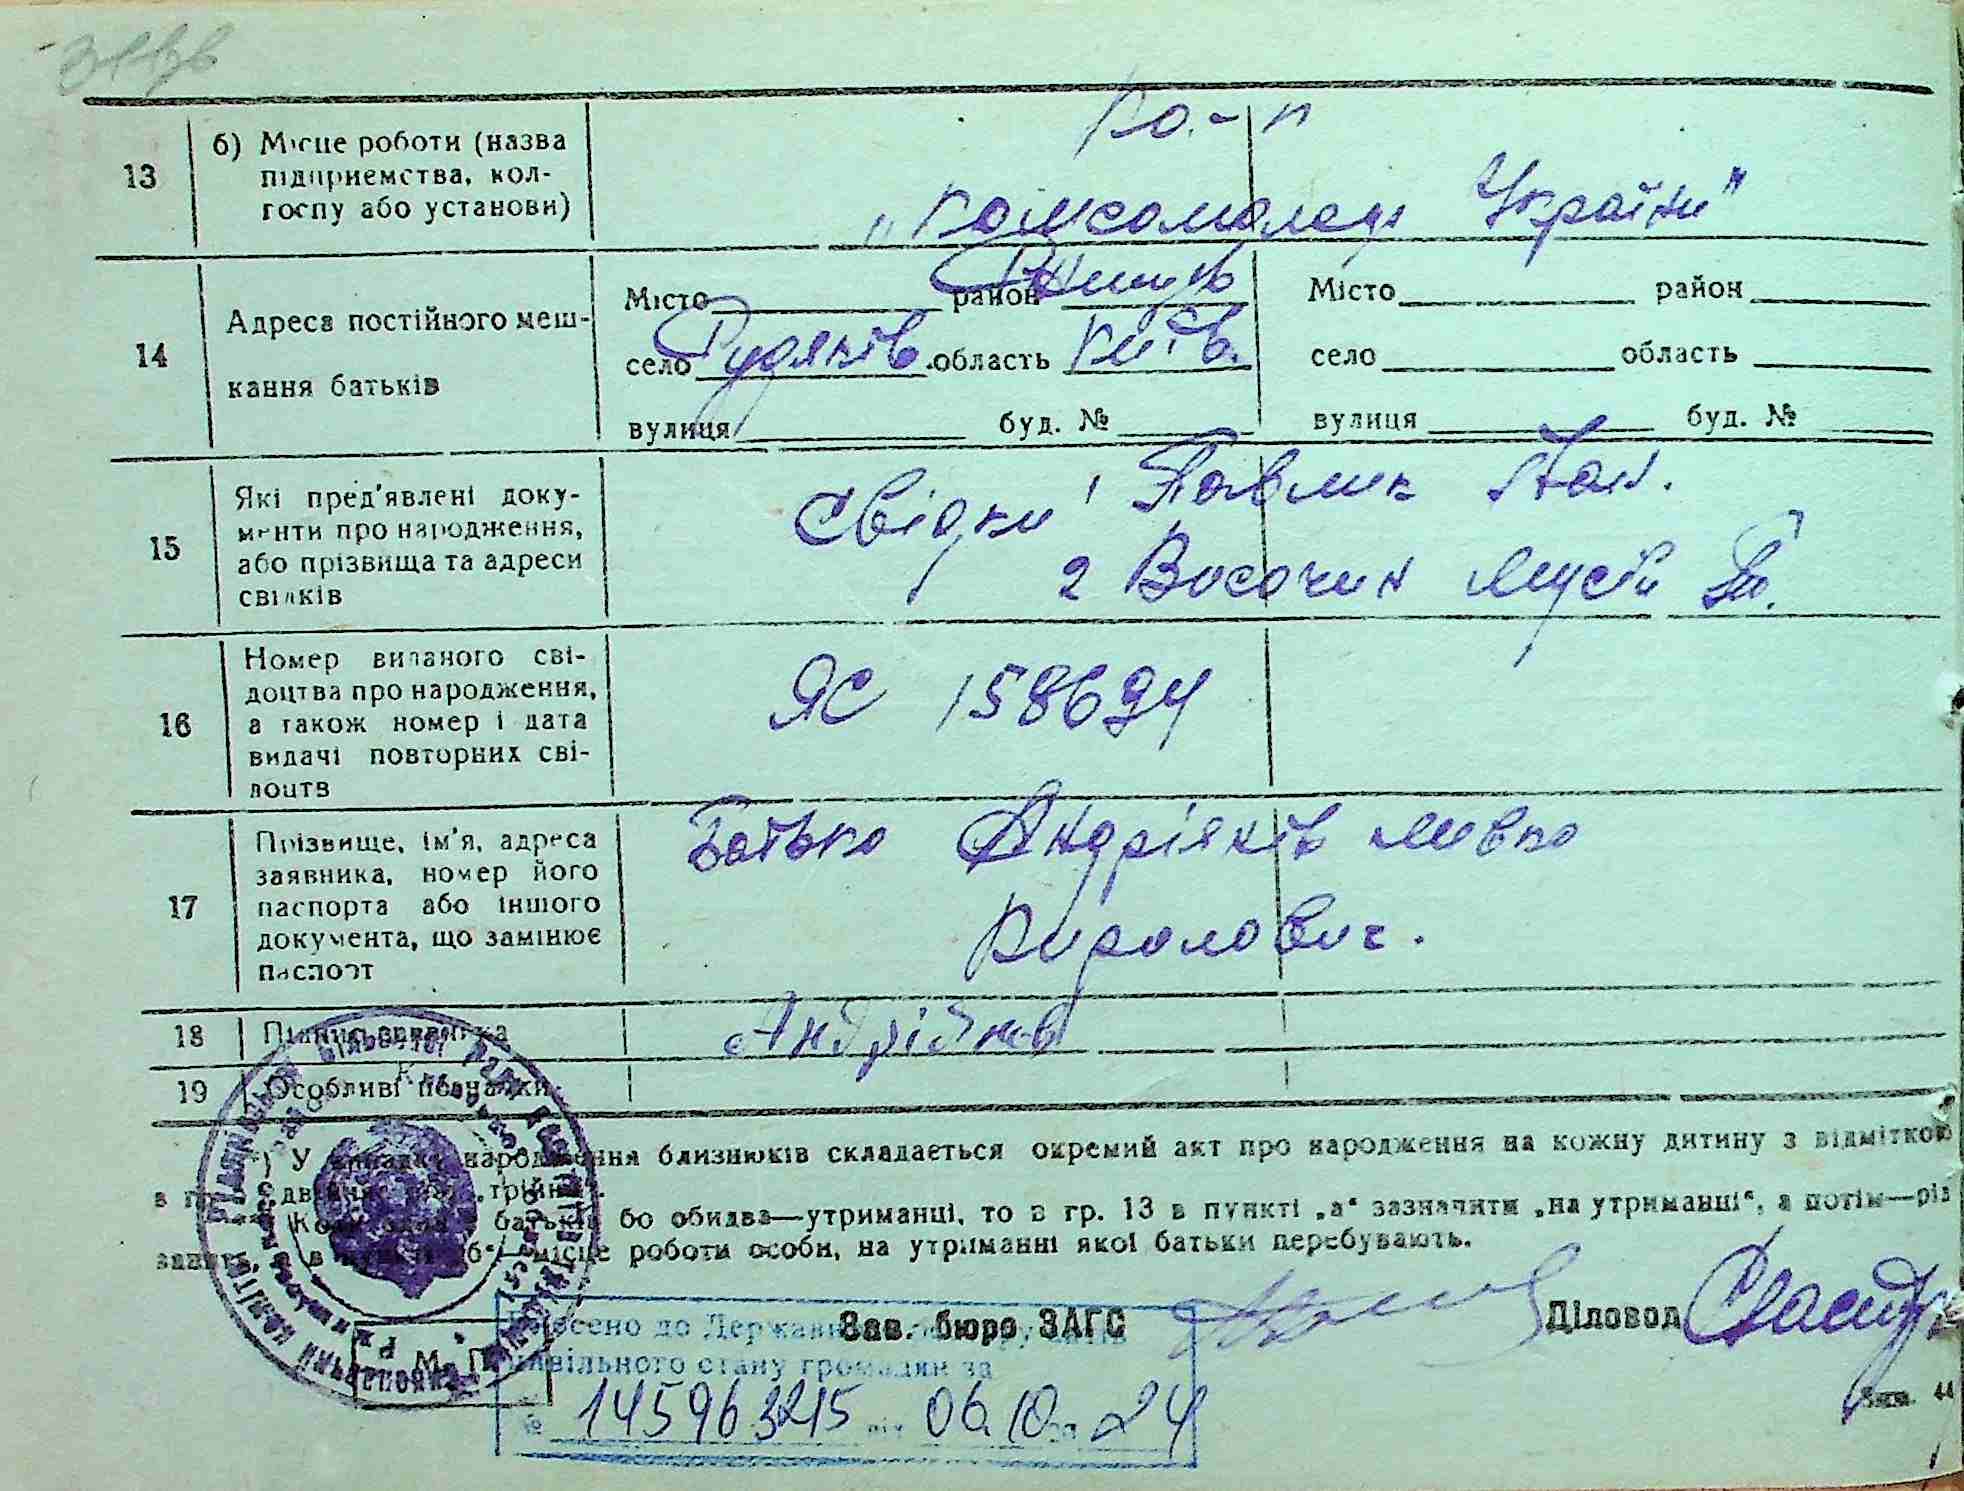 13
б) Місце роботи (назва
підприємства, кол-
госпу або установи)
"Комсомолець України"
14
Адреса постійного меш-
кання батьків
Місто район Ржищів
село Рудяків область Київ.
вулиця буд. №
Місто район
село область
вулиця буд. №
15
Які пред'явлені доку-
менти про народження,
або прізвища та адреси
свідків
Свідки 1 Павлик
2 Височин Мусій
16
Номер виданого сві-
доцтва про народження,
а також номер і дата
видачі повторних сві-
доцтв
ЯС 158694
17
Прізвище, ім'я, адреса
заявника, номер його
паспорта або іншого
документа, що замінює
паспорт
Батько Андріяків Мивко
Кирилович.
18
Підпис заявника
Андріяков
19
Особливі познаки
*) У випадку народження близнюків складається окремий акт про народження на кожну дитину з відміткою
в гр. „двійня" або „трійня".
**) Коли один з батьків бо обидва—утриманці, то в гр. 13 в пункті „а" зазначити „на утриманці", а потім—різ
в пункті „б"—місце роботи особи, на утриманні якої батьки перебувають.
Зав. бюро ЗАГС
Діловод
М. П.
Внесено до Державного
цивільного стану громадян за
№ 145963215 від 06.10.24
44